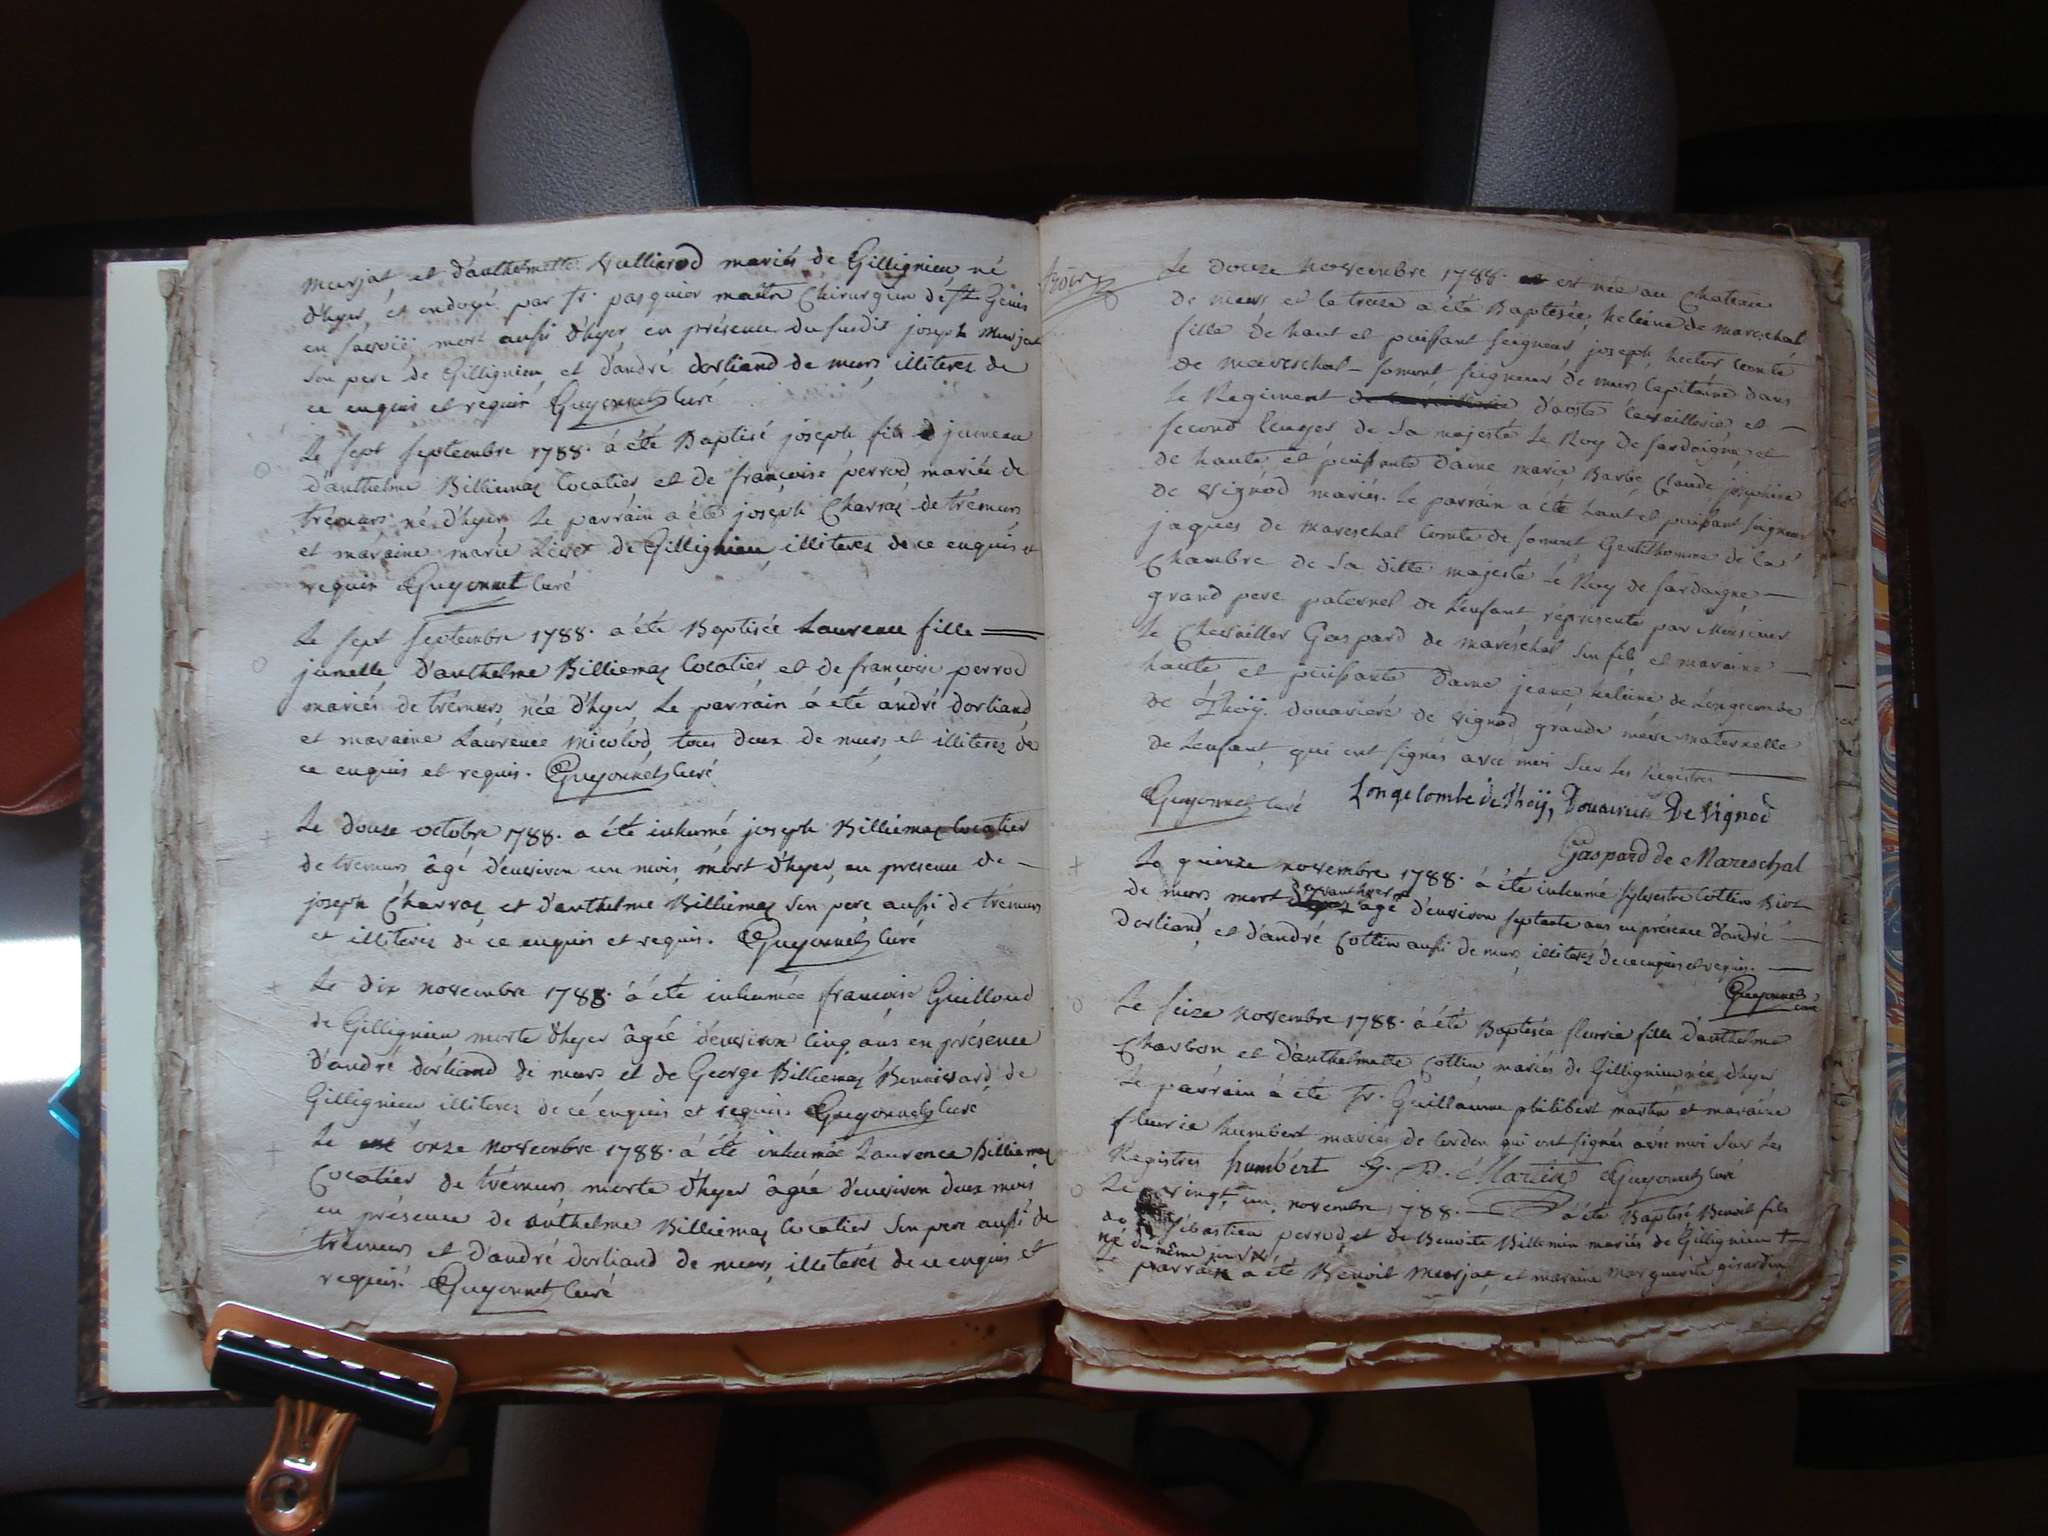 murjat, et d'anthelmette Vullierod mariés de Gillignieu né
d'hyer, et endoyé par Sr. pasquier maitre Chirurgien de St. Genis
en Savoie mort aussi d'hyer, en présence du susdit joseph murjat
son pere de Gillignieu, et d'andré dorliand de murs illiteres de
ce enquis et requis Guyonnet Curé
Le sept septembre 1788. a été Baptisé joseph fils jumeau
d'anthelme Billiemaz locatier et de françoise perrod mariés de
trémurs né d'hyer, Le parrain a été joseph Charraz de trémurs
et maraine marie de Gillignieu illiteres de ce enquis et
requis Guyonnet Curé
Le sept Septembre 1788. a été Baptisée Laurence fille
jumelle d'anthelme Billiemaz locatier, et de françoise perrod
mariés de trémurs née d'hyer, Le parrain a été andré dorliand
et maraine Laurence micolod, tous deux de murs et illiteres de
ce enquis et requis. Guyonnet Curé
Le douze octobre 1788. a été inhumé joseph Billiemaz locatier
de trémurs âgé d'environ un mois, mort d'hyer, en presence de
joseph Charraz et d'anthelme Billiemaz son pere aussi de trémurs
et illiteres de ce enquis et requis. Guyonnet Curé
Le dix novembre 1788. a été inhumée françoise Guilloud
de Gillignieu morte d'hyer âgée d'environ cinq ans en présence
d'andré dorliand de murs et de George Billiemaz Bennivard de
Gillignieu illiteres de ce enquis et requis Guyonnet Curé
Le onze novembre 1788. a été inhumée Laurence Billiemaz
locatier de trémurs morte d'hyer âgée d'environ deux mois
en présence de anthelme Billiemaz locatier son pere aussi de
trémurs et d'andré dorliand de murs, illiteres de ce enquis et
requis. Guyonnet Curé
Le douze novembre 1788. est née au Chateau
de murs et le treize a été Baptisée heleine de mareschal
fille de haut et puissant seigneur joseph hector comte
de mareschal somont seigneur de murs Capitaine dans
le Regiment d'aoste Cavaillerie, et
second Ecuyer de Sa majesté Le Roy de sardaigne, et
de haute et puissante dame marie Barbe Claude josephine
de vignod mariés. Le parrain a été haut et puissant seigneur
jaques de mareschal comte de somont Gentilhomme de la
Chambre de Sa ditte majesté Le Roy de sardaigne
grand pere paternel de L'enfant, réprésenté par Monsieur
Le Chevailler Gaspard de mareschal son fils et maraine
haute et puissante dame jeane heleine de Longecombe
de Thoÿ douariere de vignod grande mére maternelle
de L'enfant, qui ont signés avec moi sur les Registres
Guyonnet Curé Longecombe de Thoÿ, Douairiere De Vignod
Gaspard de Mareschal
Le quinze novembre 1788. a été inhumé sylvestre Cottin
de murs mort avanthier âgé d'environ septante ans en présence d'andré
dorliand, et d'andré Cottin aussi de murs illiteres de ce enquis et requis.
Guyonnet curé
Le seize novembre 1788. a été Baptisée fleurie fille d'anthelme
Charbon et d'anthelmette Cottin mariés de Gillignieu née d'hyer
Le parrain a été Sr. Guillaume philibert martin et maraine
fleurie humbert mariés de Cordon qui ont signés avec moi sur les
Registres humbert G. P. Martin Guyonnet Curé
Le vingt un novembre 1788. a été Baptisé Benoit fils
de Sébastien perrod, et de Benoite Billemin mariés de Gillignieu
né du même jour
Le parrain a été Benoit murjat, et maraine marguerite girardin